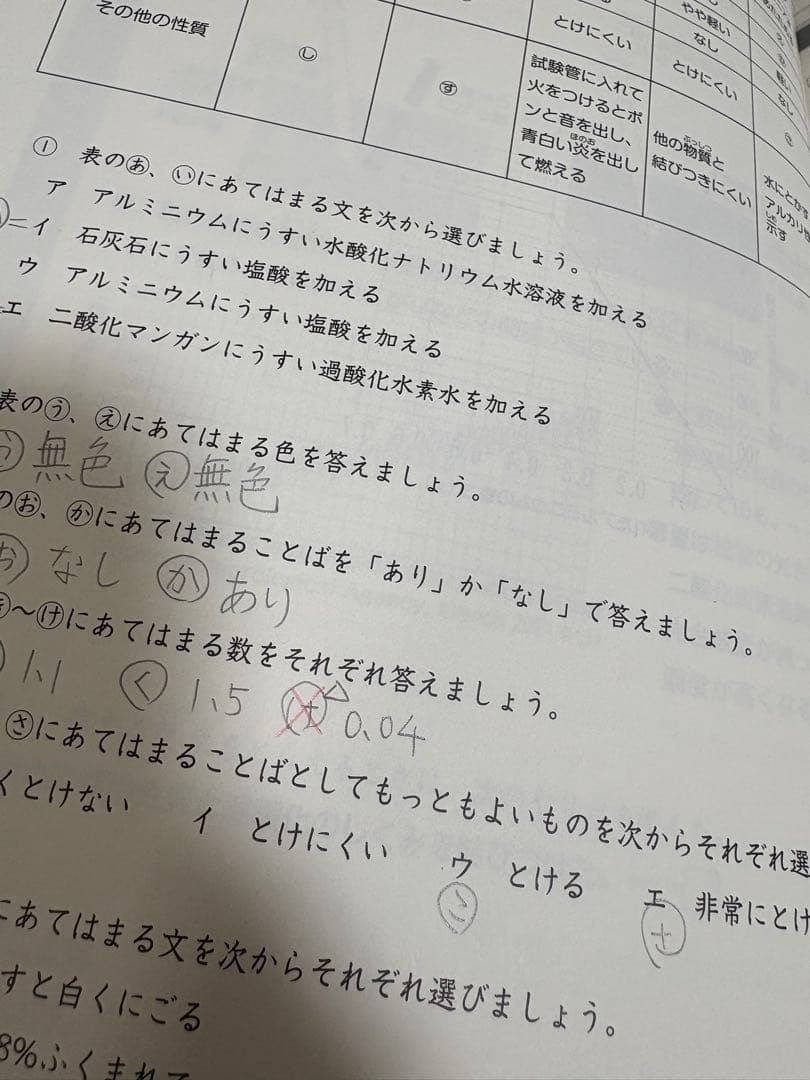 その他の性質
し
す
とけにくい
やや軽い
なし
とけにくい
軽い
なし
試験管に入れて
火をつけるとポ
ンと音を出し、
青白い炎を出し
て燃える
ほのお
他の物質と
結びつきにくい
ぶっしつ
水にとかす
アルカリ性
示す
しめ
① 表のあ、いにあてはまる文を次から選びましょう。
ア アルミニウムにうすい水酸化ナトリウム水溶液を加える
イ 石灰石にうすい塩酸を加える
ウ アルミニウムにうすい塩酸を加える
エ 二酸化マンガンにうすい過酸化水素水を加える
表のう、えにあてはまる色を答えましょう。
う 無色 え 無色
のお、かにあてはまることばを「あり」か「なし」で答えましょう。
お なし か あり
き〜けにあてはまる数をそれぞれ答えましょう。
1.1 く 1.5 け △ 0.04
さにあてはまることばとしてもっともよいものを次からそれぞれ選
くとけない イ とけにくい ウ とける エ 非常にとけ
こ さ
にあてはまる文を次からそれぞれ選びましょう。
すと白くにごる
8%ふくまれて